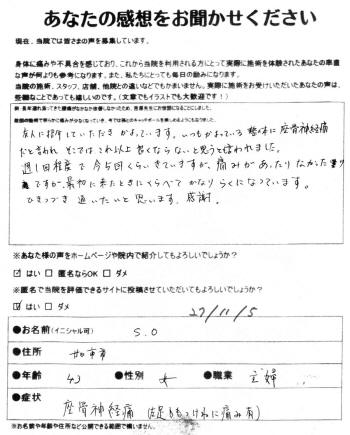 あなたの感想をお聞かせください
現在、当院では皆さまの声を募集しています。
身体に痛みや不具合を感じており、これから当院を利用される方にとって実際に施術を体験されたあなたの率直
な声が何よりも参考になります。また、私たちにとっても毎日の励みになります。
当院の施術、スタッフ、店舗、他院との違いなどでもかまいません。実際に施術をお受けいただいたあなたの声は、
些細なことであっても嬉しいのです。（文章でもイラストでも大歓迎です！）
友人に紹介していただき かよっています。いつもかよっている 整体に 座骨神経痛
だと言われ そこではこれ以上 良くならないと思うと言われました。
週1回程度で 今5回くらいきていますが、痛みがあったりなかった
ですが、最初に来たときにくらべて かなり らくになっています。
ひきつづき 通いたいと 思います。感謝。
※あなた様の声をホームページや院内で紹介してもよろしいでしょうか？
☑ はい □ 匿名ならOK □ ダメ
※匿名で当院を評価できるサイトに投稿させていただいてもよろしいでしょうか？
☑ はい □ ダメ
27/11/5
●お名前(イニシャル可) S.O
●住所 加東市
●年齢 42 ●性別 女 ●職業 主婦
●症状
座骨神経痛 (足もももつけねに痛み有)
※お名前や年齢や住所など公開できる範囲で構いません。